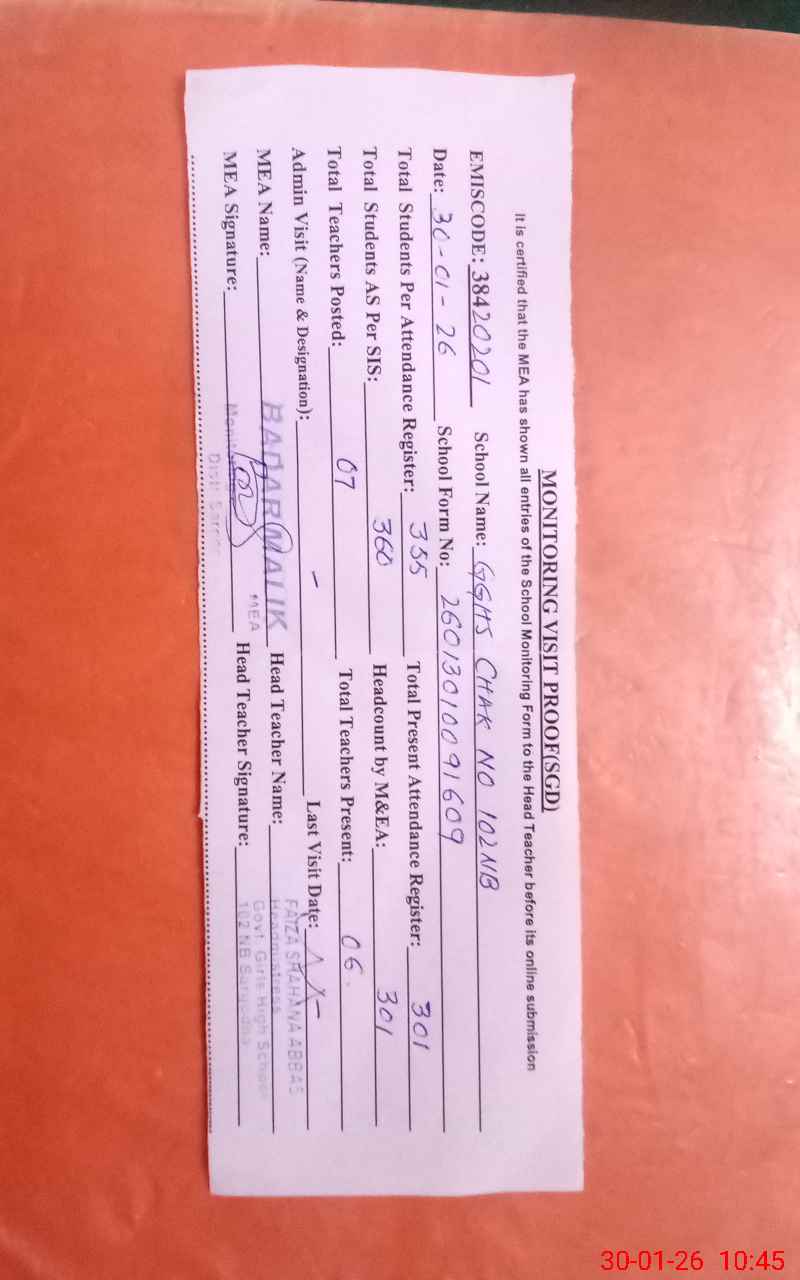 MONITORING VISIT PROOF(SGD)
It is certified that the MEA has shown all entries of the School Monitoring Form to the Head Teacher before its online submission
EMISCODE: 38420201 School Name: GGHS CHAK NO 102NB
Date: 30-01-26 School Form No: 26013010091609
Total Students Per Attendance Register: 355 Total Present Attendance Register: 301
Total Students AS Per SIS: 360 Headcount by M&EA: 301
Total Teachers Posted: 07 Total Teachers Present: 06.
Admin Visit (Name & Designation): - Last Visit Date:
MEA Name: BADAR MALIK Head Teacher Name: FAIZA SHAHANA ABBAS
MEA
Headmistress
MEA Signature: Head Teacher Signature:
Govt. Girls High School
102 NB Sargodha
30-01-26 10:45